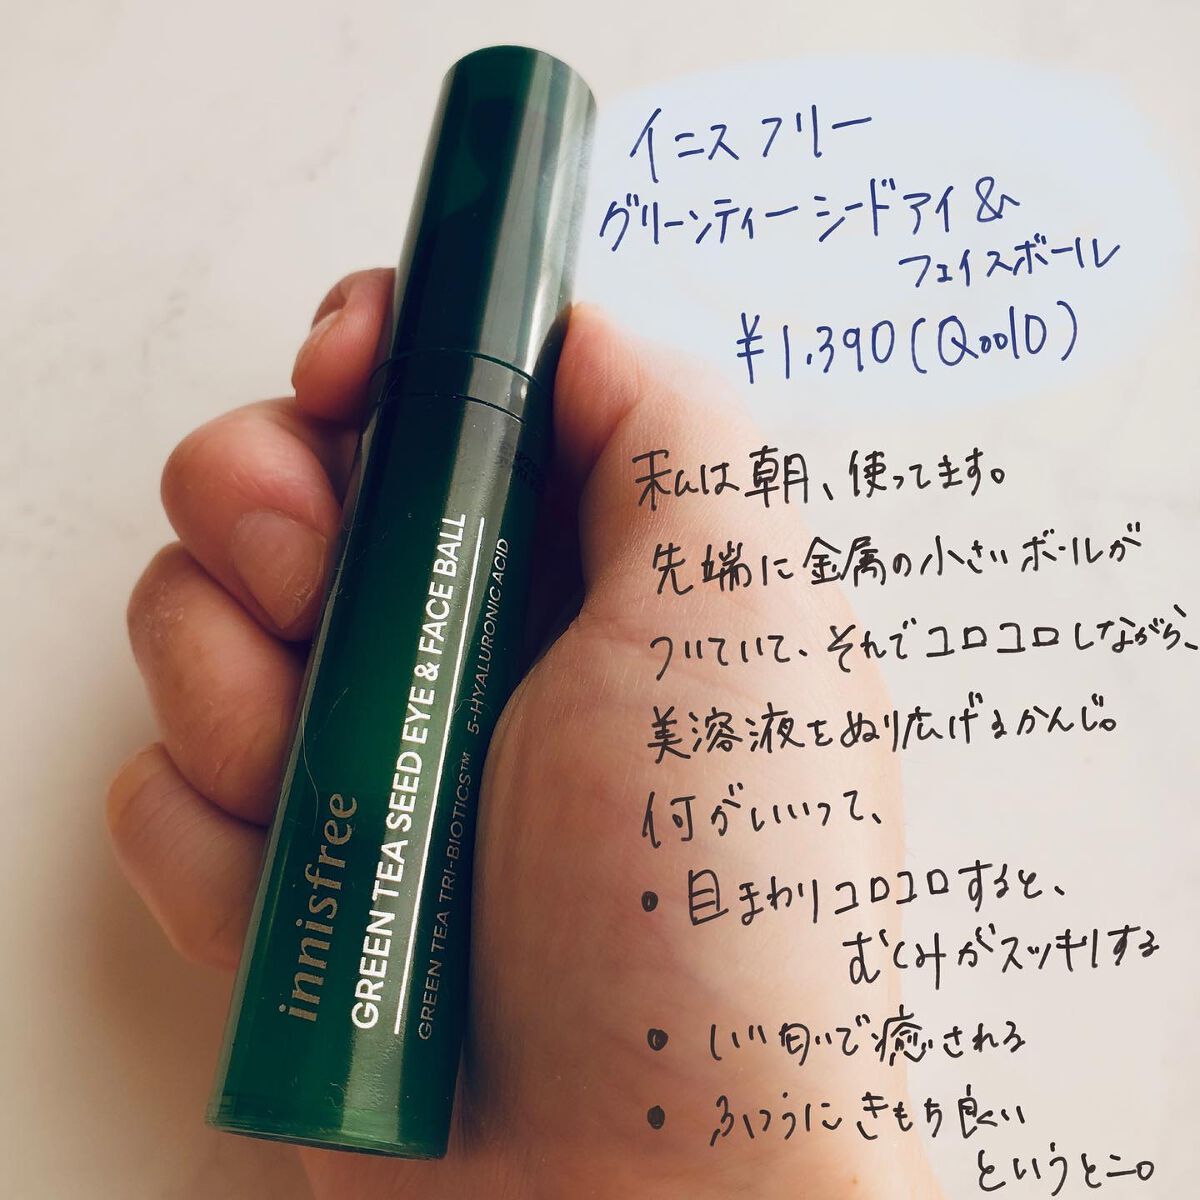 イニスフリー
グリーンティーシードアイ&
フェイスボール
¥1,390(Qoo10)
私は朝、使ってます。
先端に金属の小さいボールが
ついていて、それでコロコロしながら、
美溶液をぬり広げるかんじ。
何がいいって、
• 目まわりコロコロすると、
むくみがスッキリする
• いい匂いで癒される
• ふつうにきもち良くい
というとこ。
innisfree
GREEN TEA SEED EYE & FACE BALL
GREEN TEA TRI-BIOTICS™ 5-HYALURONIC ACID